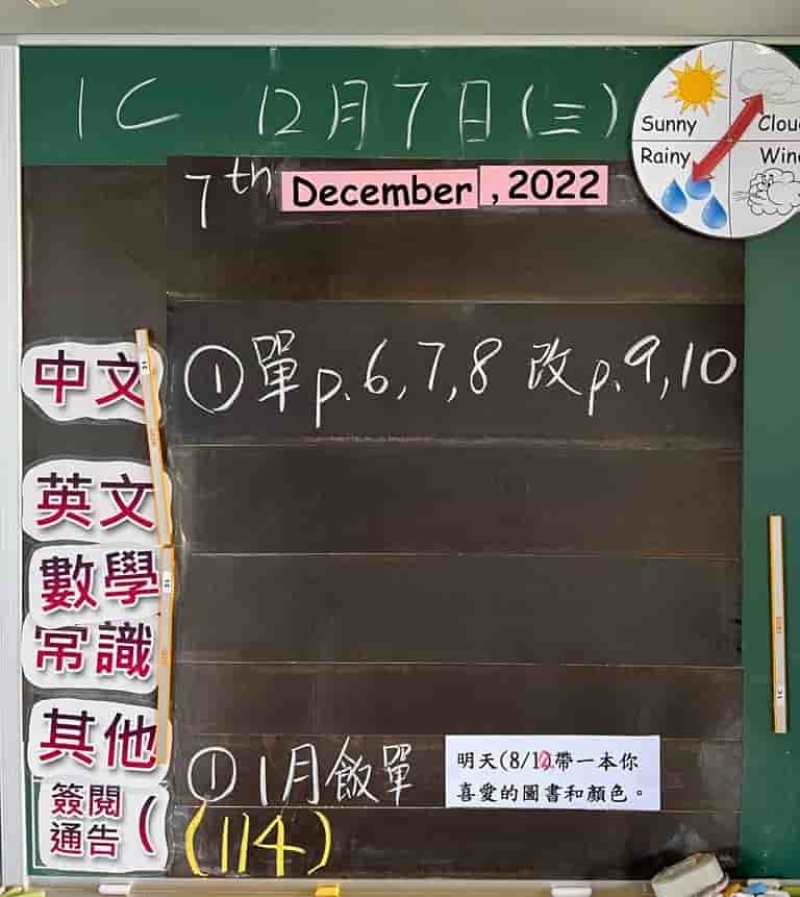 1C 12月7日(三)
Sunny
Rainy
7th December, 2022
中文 ①單p.6,7,8 改p.9,10
英文
數學
常識
其他 ①1月飯單
明天(8/12)帶一本你
喜愛的圖書和顏色。
簽閱
通告( (114)